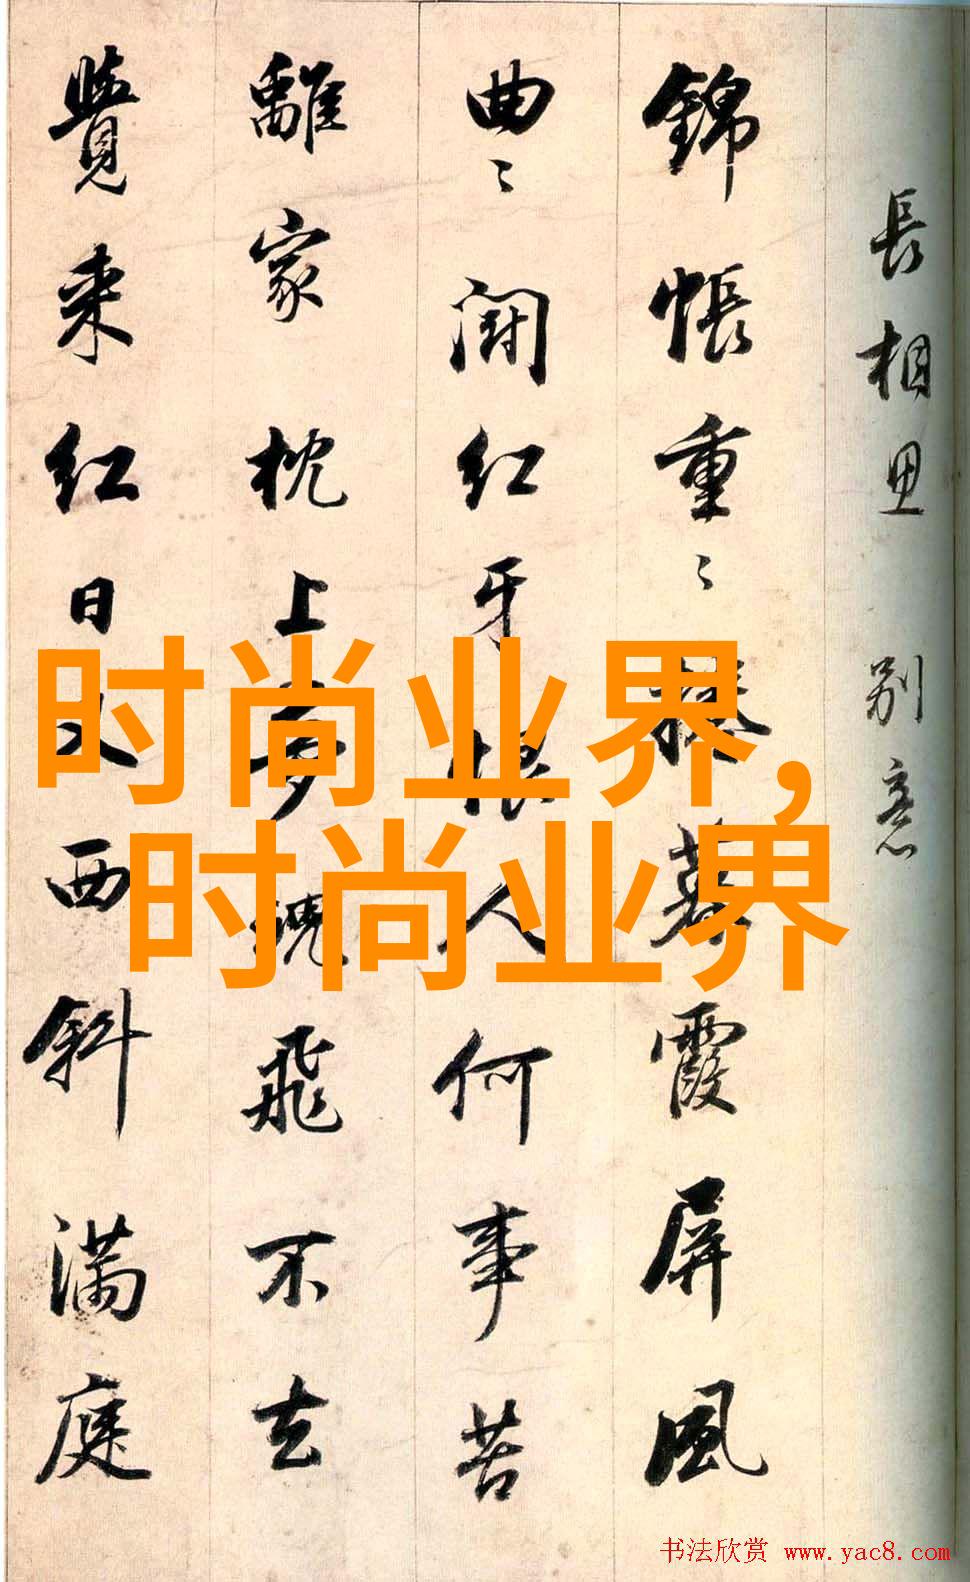 長相思 別意
錦帳重〻捲暮霞屏風
曲〻鬪紅牙恨人何事苦
離家枕上夢魂飛不去
覺来紅日又西斜滿庭
时尚业界,
时尚业界
书法欣赏 www.yac8.com